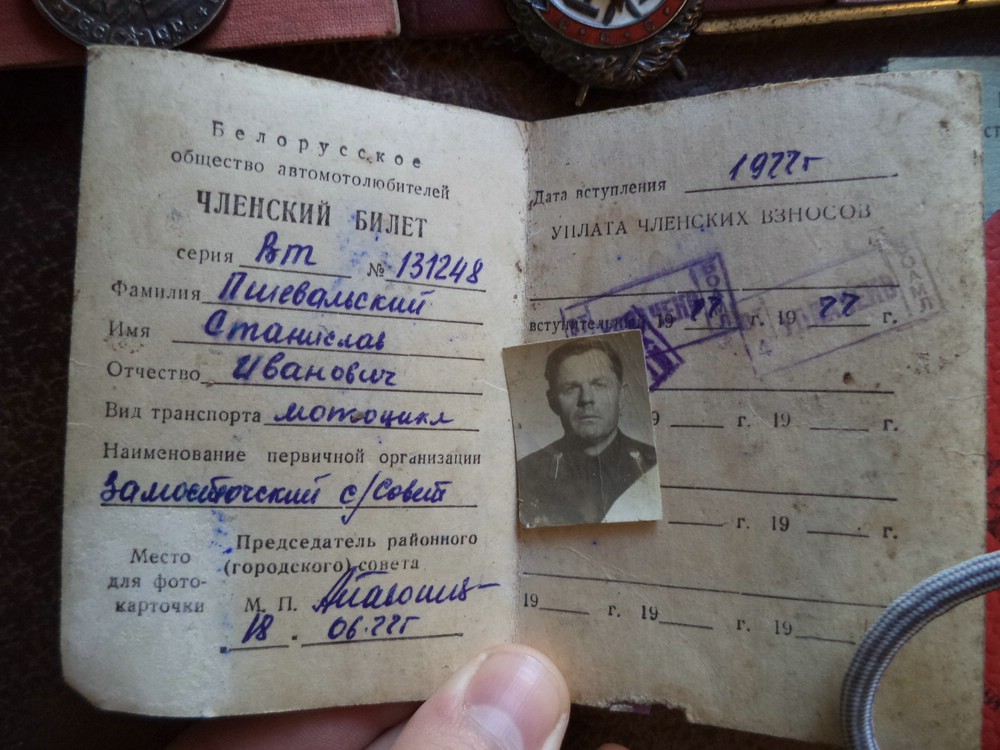 Белорусское
общество автомотолюбителей
ЧЛЕНСКИЙ БИЛЕТ
серия Вт № 131248
Фамилия Пшевальский
Имя Станислав
Отчество Иванович
Вид транспорта мотоцикл
Наименование первичной организации
Замосточский с/Совет
Место
для фото-
карточки
Председатель районного
(городского) совета
М. П.
18. 06.77г
Дата вступления 1977г
УПЛАТА ЧЛЕНСКИХ ВЗНОСОВ
вступительный 1977 г. 1977 г.
г. 19 г.
г. 19 г.
19 г. 19 г. 19 г.